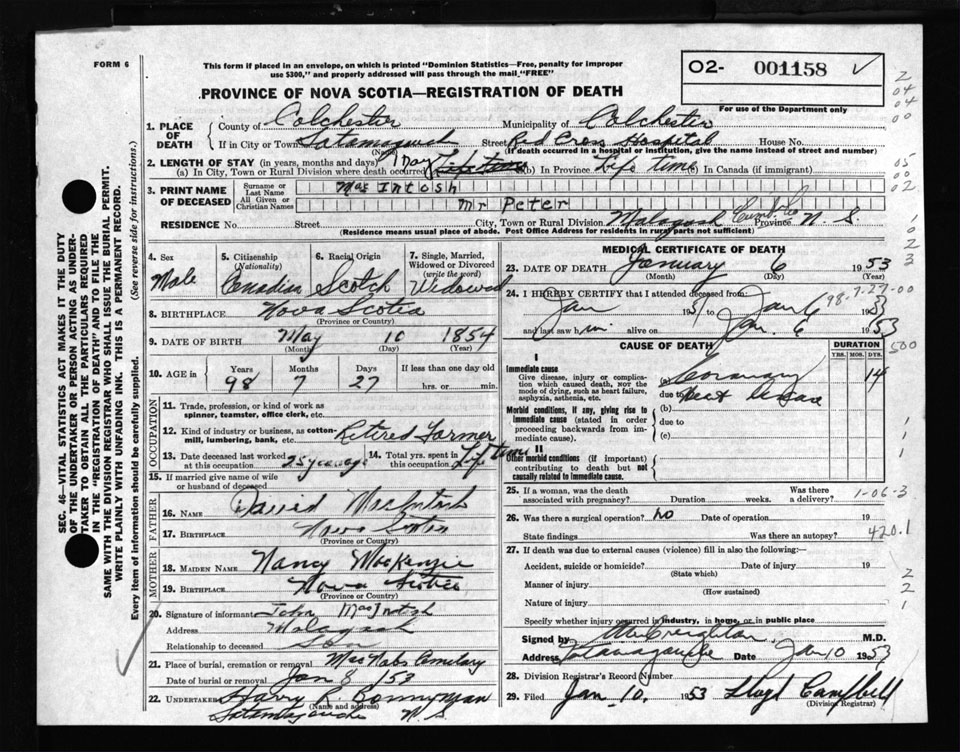 FORM 6
This form if placed in an envelope, on which is printed "Dominion Statistics—Free, penalty for improper
use $300," and properly addressed will pass through the mail "FREE"
O2- 001158 ✓
For use of the Department only
PROVINCE OF NOVA SCOTIA—REGISTRATION OF DEATH
1. PLACE OF DEATH County of Colchester Municipality of Colchester
If in City or Town (Name) Street Red Cross Hospital House No.
(If death occurred in a hospital or institution, give the name instead of street and number)
2. LENGTH OF STAY (in years, months and days)
(a) In City, Town or Rural Division where death occurred (b) In Province Life time (c) In Canada (if immigrant)
3. PRINT NAME OF DECEASED Surname or Last Name Mac Intosh
All Given or Christian Names Mr Peter
RESIDENCE No. Street City, Town or Rural Division Malagash Cumb. Co Province N. S.
(Residence means usual place of abode. Post Office Address for residents in rural parts not sufficient)
4. Sex Male
5. Citizenship (Nationality) Canadian
6. Racial Origin Scotch
7. Single, Married, Widowed or Divorced (write the word) Widowed
8. BIRTHPLACE Nova Scotia
(Province or Country)
9. DATE OF BIRTH May 10 1854
(Month) (Day) (Year)
10. AGE in Years 98 Months 7 Days 27 If less than one day old hrs. or min.
OCCUPATION
11. Trade, profession, or kind of work as spinner, teamster, office clerk, etc.
12. Kind of industry or business, as cotton-mill, lumbering, bank, etc. Retired Farmer
13. Date deceased last worked at this occupation 25 years ago 14. Total yrs. spent in this occupation Life time
15. If married give name of wife or husband of deceased
FATHER
16. NAME David MacIntosh
17. BIRTHPLACE Nova Scotia
(Province or Country)
MOTHER
18. MAIDEN NAME Nancy MacKenzie
19. BIRTHPLACE Nova Scotia
(Province or Country)
20. Signature of informant John MacIntosh
Address Malagash
Relationship to deceased Son
21. Place of burial, cremation or removal MacNabs Cemetary
Date of burial or removal Jan 8 /53
22. UNDERTAKER Harry R. Bonnyman
(Name and address)
Tatamagouche N. S.
MEDICAL CERTIFICATE OF DEATH
23. DATE OF DEATH January 6 1953
(Month) (Day)
24. I HEREBY CERTIFY that I attended deceased from:
Jan 195 to Jan 6 1953
and last saw him alive on Jan. 6 1953
98-7-27-00
CAUSE OF DEATH DURATION
YRS. MOS. DYS.
I
Immediate cause
Give disease, injury or complication which caused death, not the mode of dying, such as heart failure, asphyxia, asthenia, etc.
(a) Coronary 14
due to
Morbid conditions, if any, giving rise to immediate cause (stated in order proceeding backwards from immediate cause).
(b)
due to
(c)
II
Other morbid conditions (if important) contributing to death but not causally related to immediate cause.
25. If a woman, was the death associated with pregnancy? Duration weeks. Was there a delivery? 1-06-3
26. Was there a surgical operation? No Date of operation 19
State findings Was there an autopsy? 420.1
27. If death was due to external causes (violence) fill in also the following:—
Accident, suicide or homicide? Date of injury 19
(State which)
Manner of injury
(How sustained)
Nature of injury
Specify whether injury occurred in industry, in home, or in public place
Signed by Creighton M.D.
Address Tatamagouche Date Jan 10 1953
28. Division Registrar's Record Number
29. Filed Jan 10. 1953 Lloyd Campbell
(Division Registrar)
SEC. 46—VITAL STATISTICS ACT MAKES IT THE DUTY
OF THE UNDERTAKER OR PERSON ACTING AS UNDER-
TAKER TO OBTAIN ALL THE PARTICULARS REQUIRED
IN THE "REGISTRATION OF DEATH" AND TO FILE THE
SAME WITH THE DIVISION REGISTRAR WHO SHALL ISSUE THE BURIAL PERMIT.
WRITE PLAINLY WITH UNFADING INK. THIS IS A PERMANENT RECORD.
Every item of information should be carefully supplied. (See reverse side for instructions.)